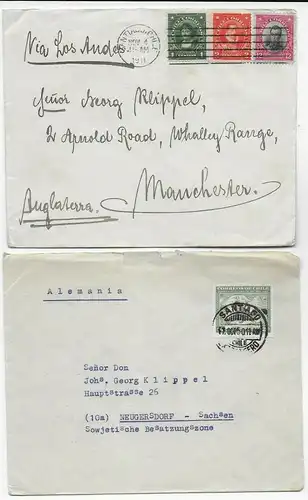 Via Los Andes
SANTIAGO CHILE
1911
Señor Georg Klippel,
2 Arnold Road, Whalley Range,
Manchester.
Anglaterra.
Alemania
CORREOS DE CHILE
SANTIAGO
CHILE
Señor Don
Johs. Georg Klippel
Hauptstrasse 25
(10a) NEUGERSDORF - Sachsen
Sowjetische Besatzungszone